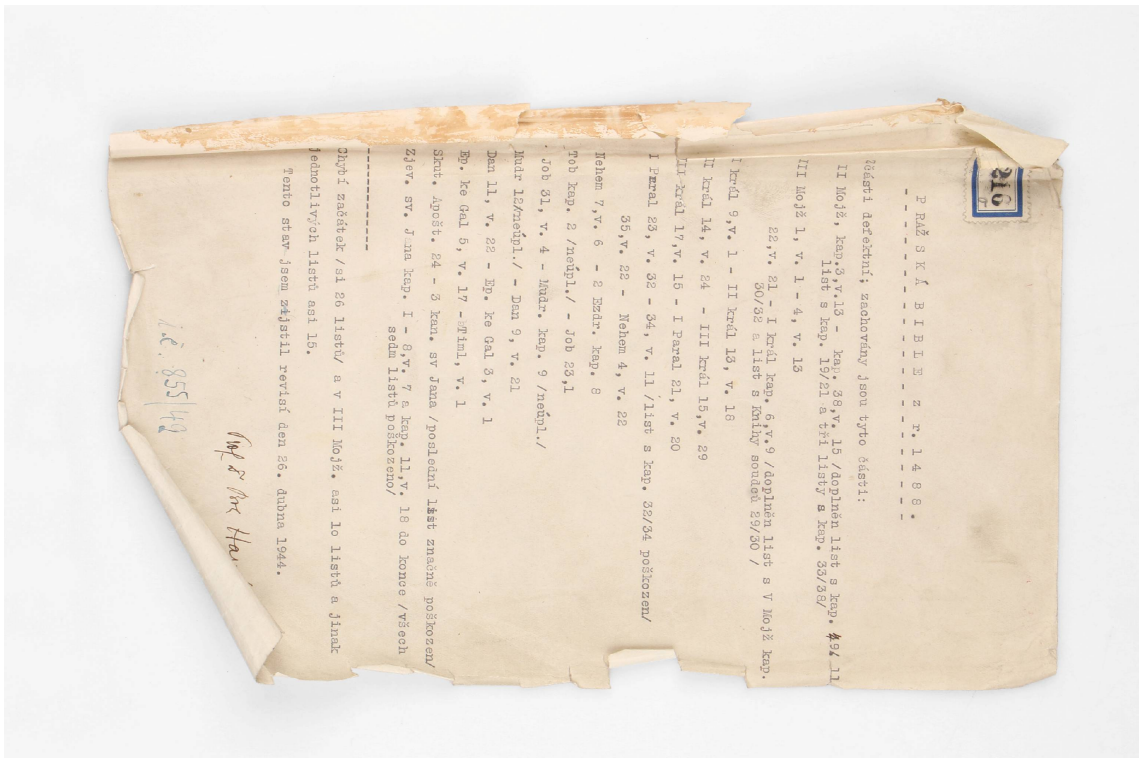 216
P R A Ž S K Á   B I B L E   z   r. 1 4 8 8 .
Zčásti defektní; zachovány jsou tyto části:
II Mojž, kap.3,v.13 - kap. 38,v. 15 /doplněn list s kap. 11
list s kap. 19/21 a tři listy s kap. 33/38/
III Mojž 1, v. 1 - 4, v. 13
22,v. 21 - I král kap. 6,v.9 /doplněn list s V Mojž kap.
30/32 a list s Knihy soudců 29/30 /
I král 9,v. 1 - II král 13, v. 18
II král 14, v. 24 - III král 15,v. 29
III král 17,v. 15 - I Paral 21, v. 20
I Paral 23, v. 32 - 34, v. 11 /list s kap. 32/34 poškozen/
35,v. 22 - Nehem 4, v. 22
Nehem 7,v. 6 - 2 Ezdr. kap. 8
Tob kap. 2 /neúpl./ - Job 23,1
Job 31, v. 4 - Mudr. kap. 9 /neúpl./
Mudr 12/neúpl./ - Dan 9, v. 21
Dan 11, v. 22 - Ep. ke Gal 3, v. 1
Ep. ke Gal 5, v. 17 - Tim1, v. 1
Skut. Apošt. 24 - 3 kan. sv Jana /poslední list značně poškozen/
Zjev. sv. Jana kap. I - 8,v. 7 a kap. 11,v. 18 do konce /všech
sedm listů poškozeno/
Chybí začátek /si 26 listů/ a v III Mojž. asi lo listů a jinak
jednotlivých listů asi 15.
Tento stav jsem zjistil revisí den 26. dubna 1944.
Prof Dr
i.č. 855/42